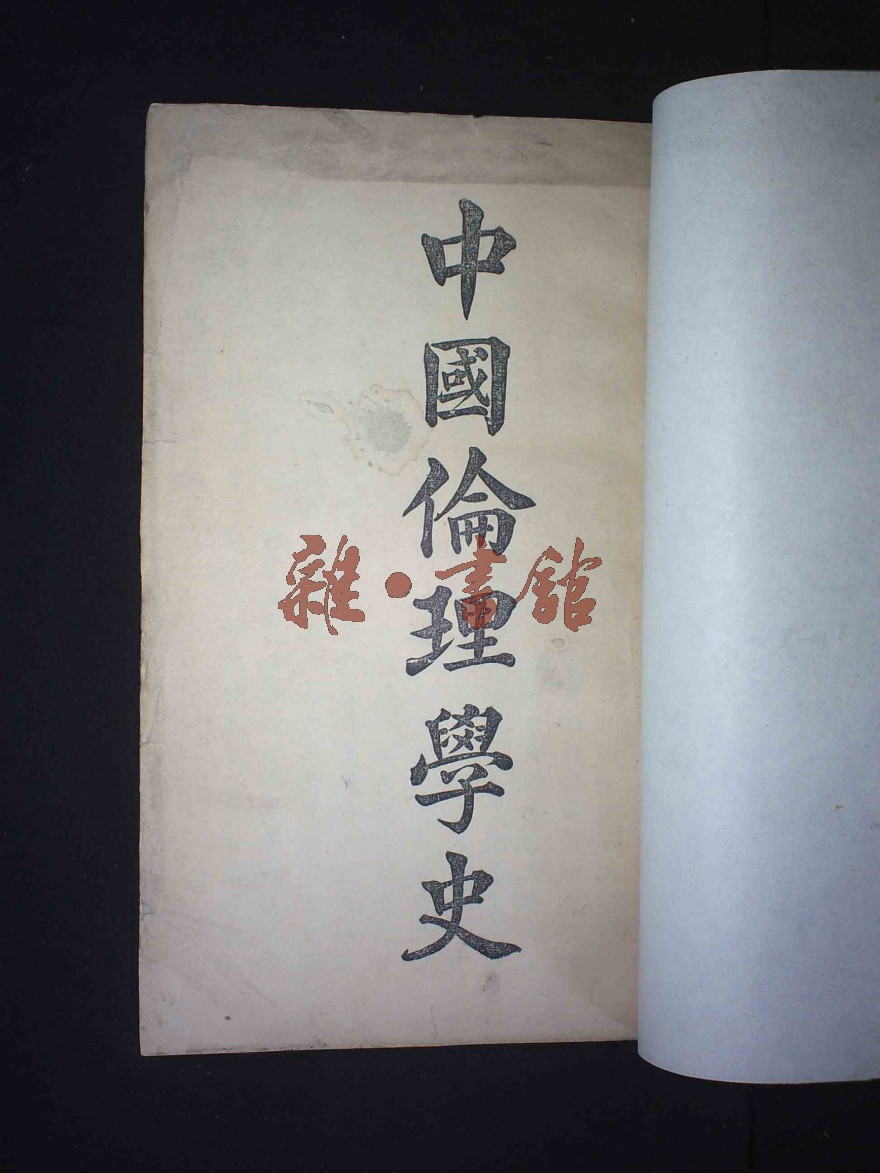 中國倫理學史
雜·書館